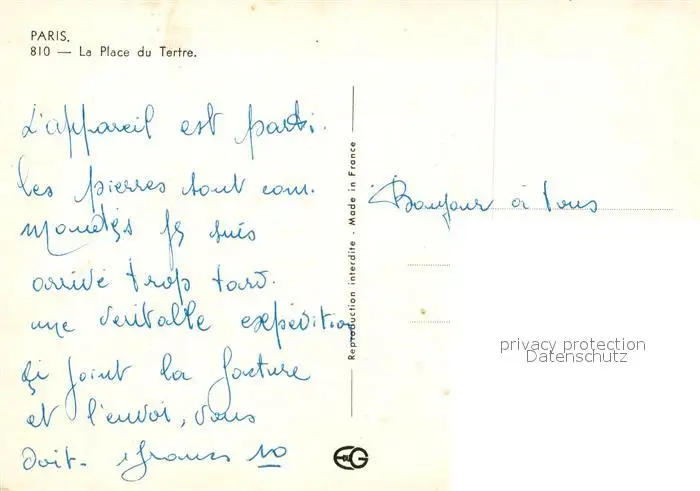 PARIS.
810 — La Place du Tertre.
L'appareil est parti.
les pierres sont com.
mandés je suis
arrivé trop tard.
une veritable expédition
Çi joint la facture
et l'envoi, vous
doit. 1 francs 10
Reproduction interdite - Made in France
Bonjour à tous
privacy protection
Datenschutz